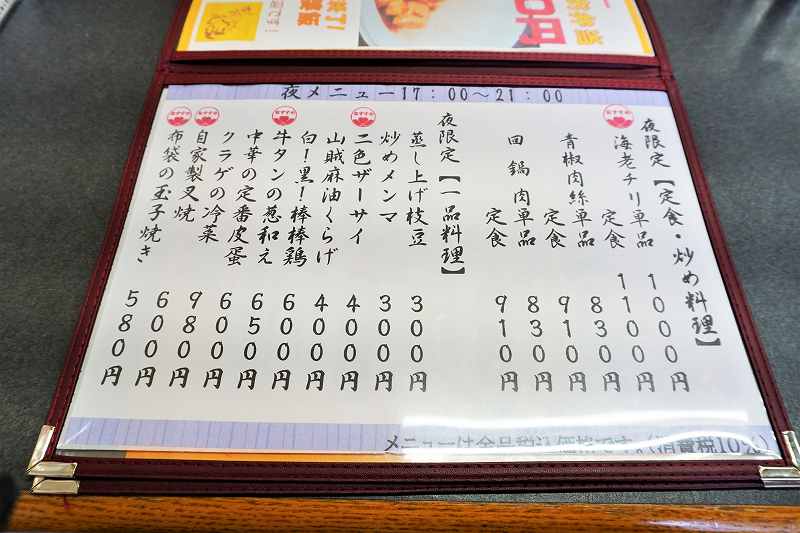 夜メニュー17:00～21:00
夜限定【定食・炒め料理】
おすすめ
海老チリ単品 1000円
定食 1100円
青椒肉絲単品 830円
定食 910円
回鍋肉単品 830円
定食 910円
夜限定【一品料理】
蒸し上げ枝豆 300円
炒めメンマ 300円
おすすめ
二色ザーサイ 400円
山賊麻油くらげ 400円
白!黒!棒棒鶏 600円
おすすめ
牛タンの葱和え 650円
中華の定番皮蛋 600円
クラゲの冷菜 980円
おすすめ
自家製叉焼 600円
おすすめ
布袋の玉子焼き 580円
メニューは全品税込価格です。(消費税10%)
0円
弁当
です!